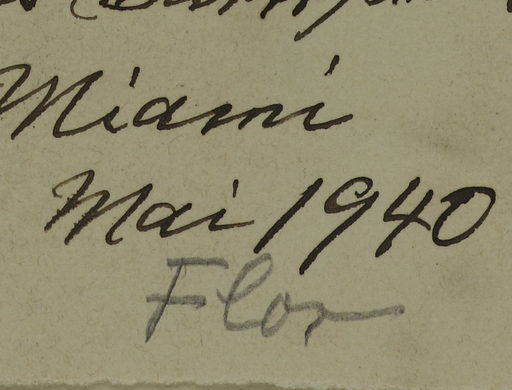 Miami
Mai 1940
Flor